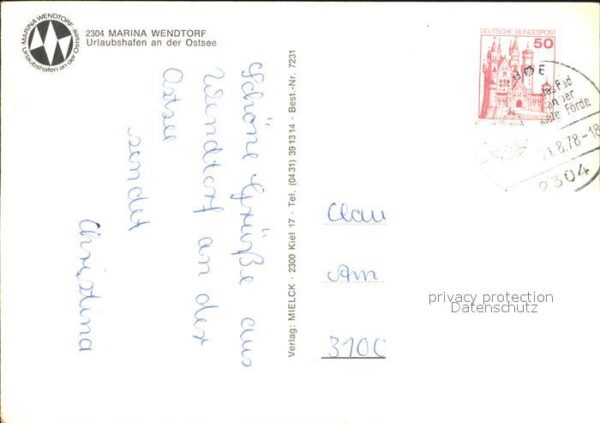 MARINA WENDTORF
Urlaubshafen an der Ostsee
2304 MARINA WENDTORF
Urlaubshafen an der Ostsee
Schöne Grüße aus
Wendtorf an der
Ostsee
sendet
Christina
Verlag: MIELCK · 2300 Kiel 17 · Tel. (04 31) 39 13 14 · Best.-Nr. 7231
DEUTSCHE BUNDESPOST
50
BOE
an der
Kieler Förde
1.8.78-18
2304
Clau
Am
3100
privacy protection
Datenschutz